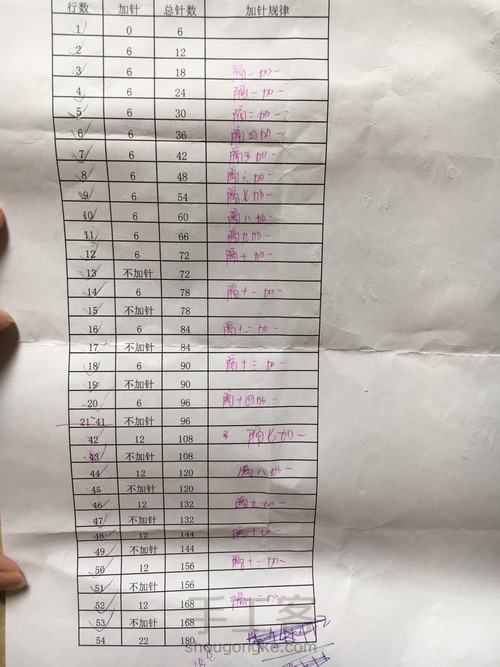 行数 加针 总针数 加针规律
1 0 6
2 6 12
3 6 18 隔一加一
4 6 24 隔二加一
5 6 30 隔三加一
6 6 36 隔四加一
7 6 42 隔五加一
8 6 48 隔六加一
9 6 54 隔七加一
10 6 60 隔八加一
11 6 66 隔九加一
12 6 72 隔十加一
13 不加针 72
14 6 78 隔十一加一
15 不加针 78
16 6 84 隔十二加一
17 不加针 84
18 6 90 隔十三加一
19 不加针 90
20 6 96 隔十四加一
21~41 不加针 96
42 12 108 隔七加一
43 不加针 108
44 12 120 隔八加一
45 不加针 120
46 12 132 隔九加一
47 不加针 132
48 12 144 隔十加一
49 不加针 144
50 12 156 隔十一加一
51 不加针 156
52 12 168 隔十二加一
53 不加针 168
54 22 180
手工客
shougongke.com